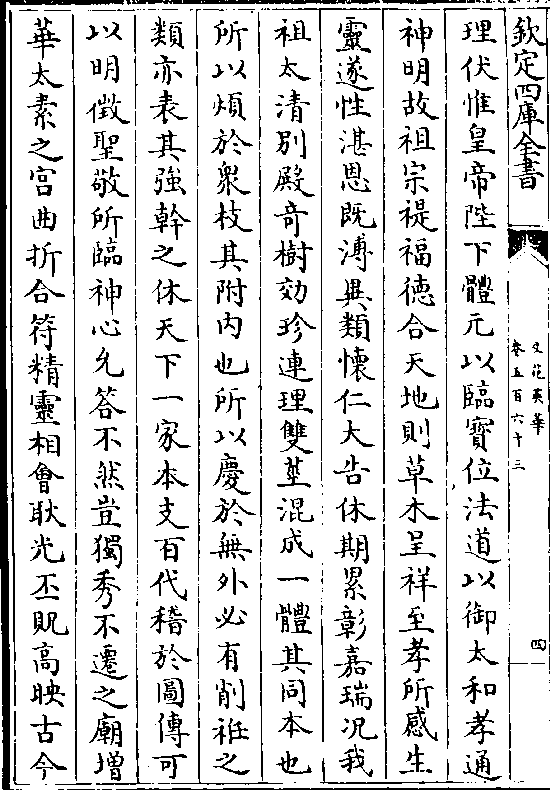 欽定四庫全書
文苑英華
卷五百六十三
四
理伏惟皇帝陛下體元以臨寶位法道以御太和孝通
神明故祖宗禔福德合天地則草木呈祥至孝所感生
靈遂性湛恩既溥異類懷仁大告休期累彰嘉瑞况我
祖太清別殿奇樹効珍連理雙莖混成一體其同本也
所以煩於衆枝其附内也所以慶於無外必有削袵之
類亦表其強幹之休天下一家本支百代稽於圖傳可
以明徵聖敬所臨神心允答不然豈獨秀不遷之廟增
華太素之宮曲折合符精靈相會耿光丕貺高映古今